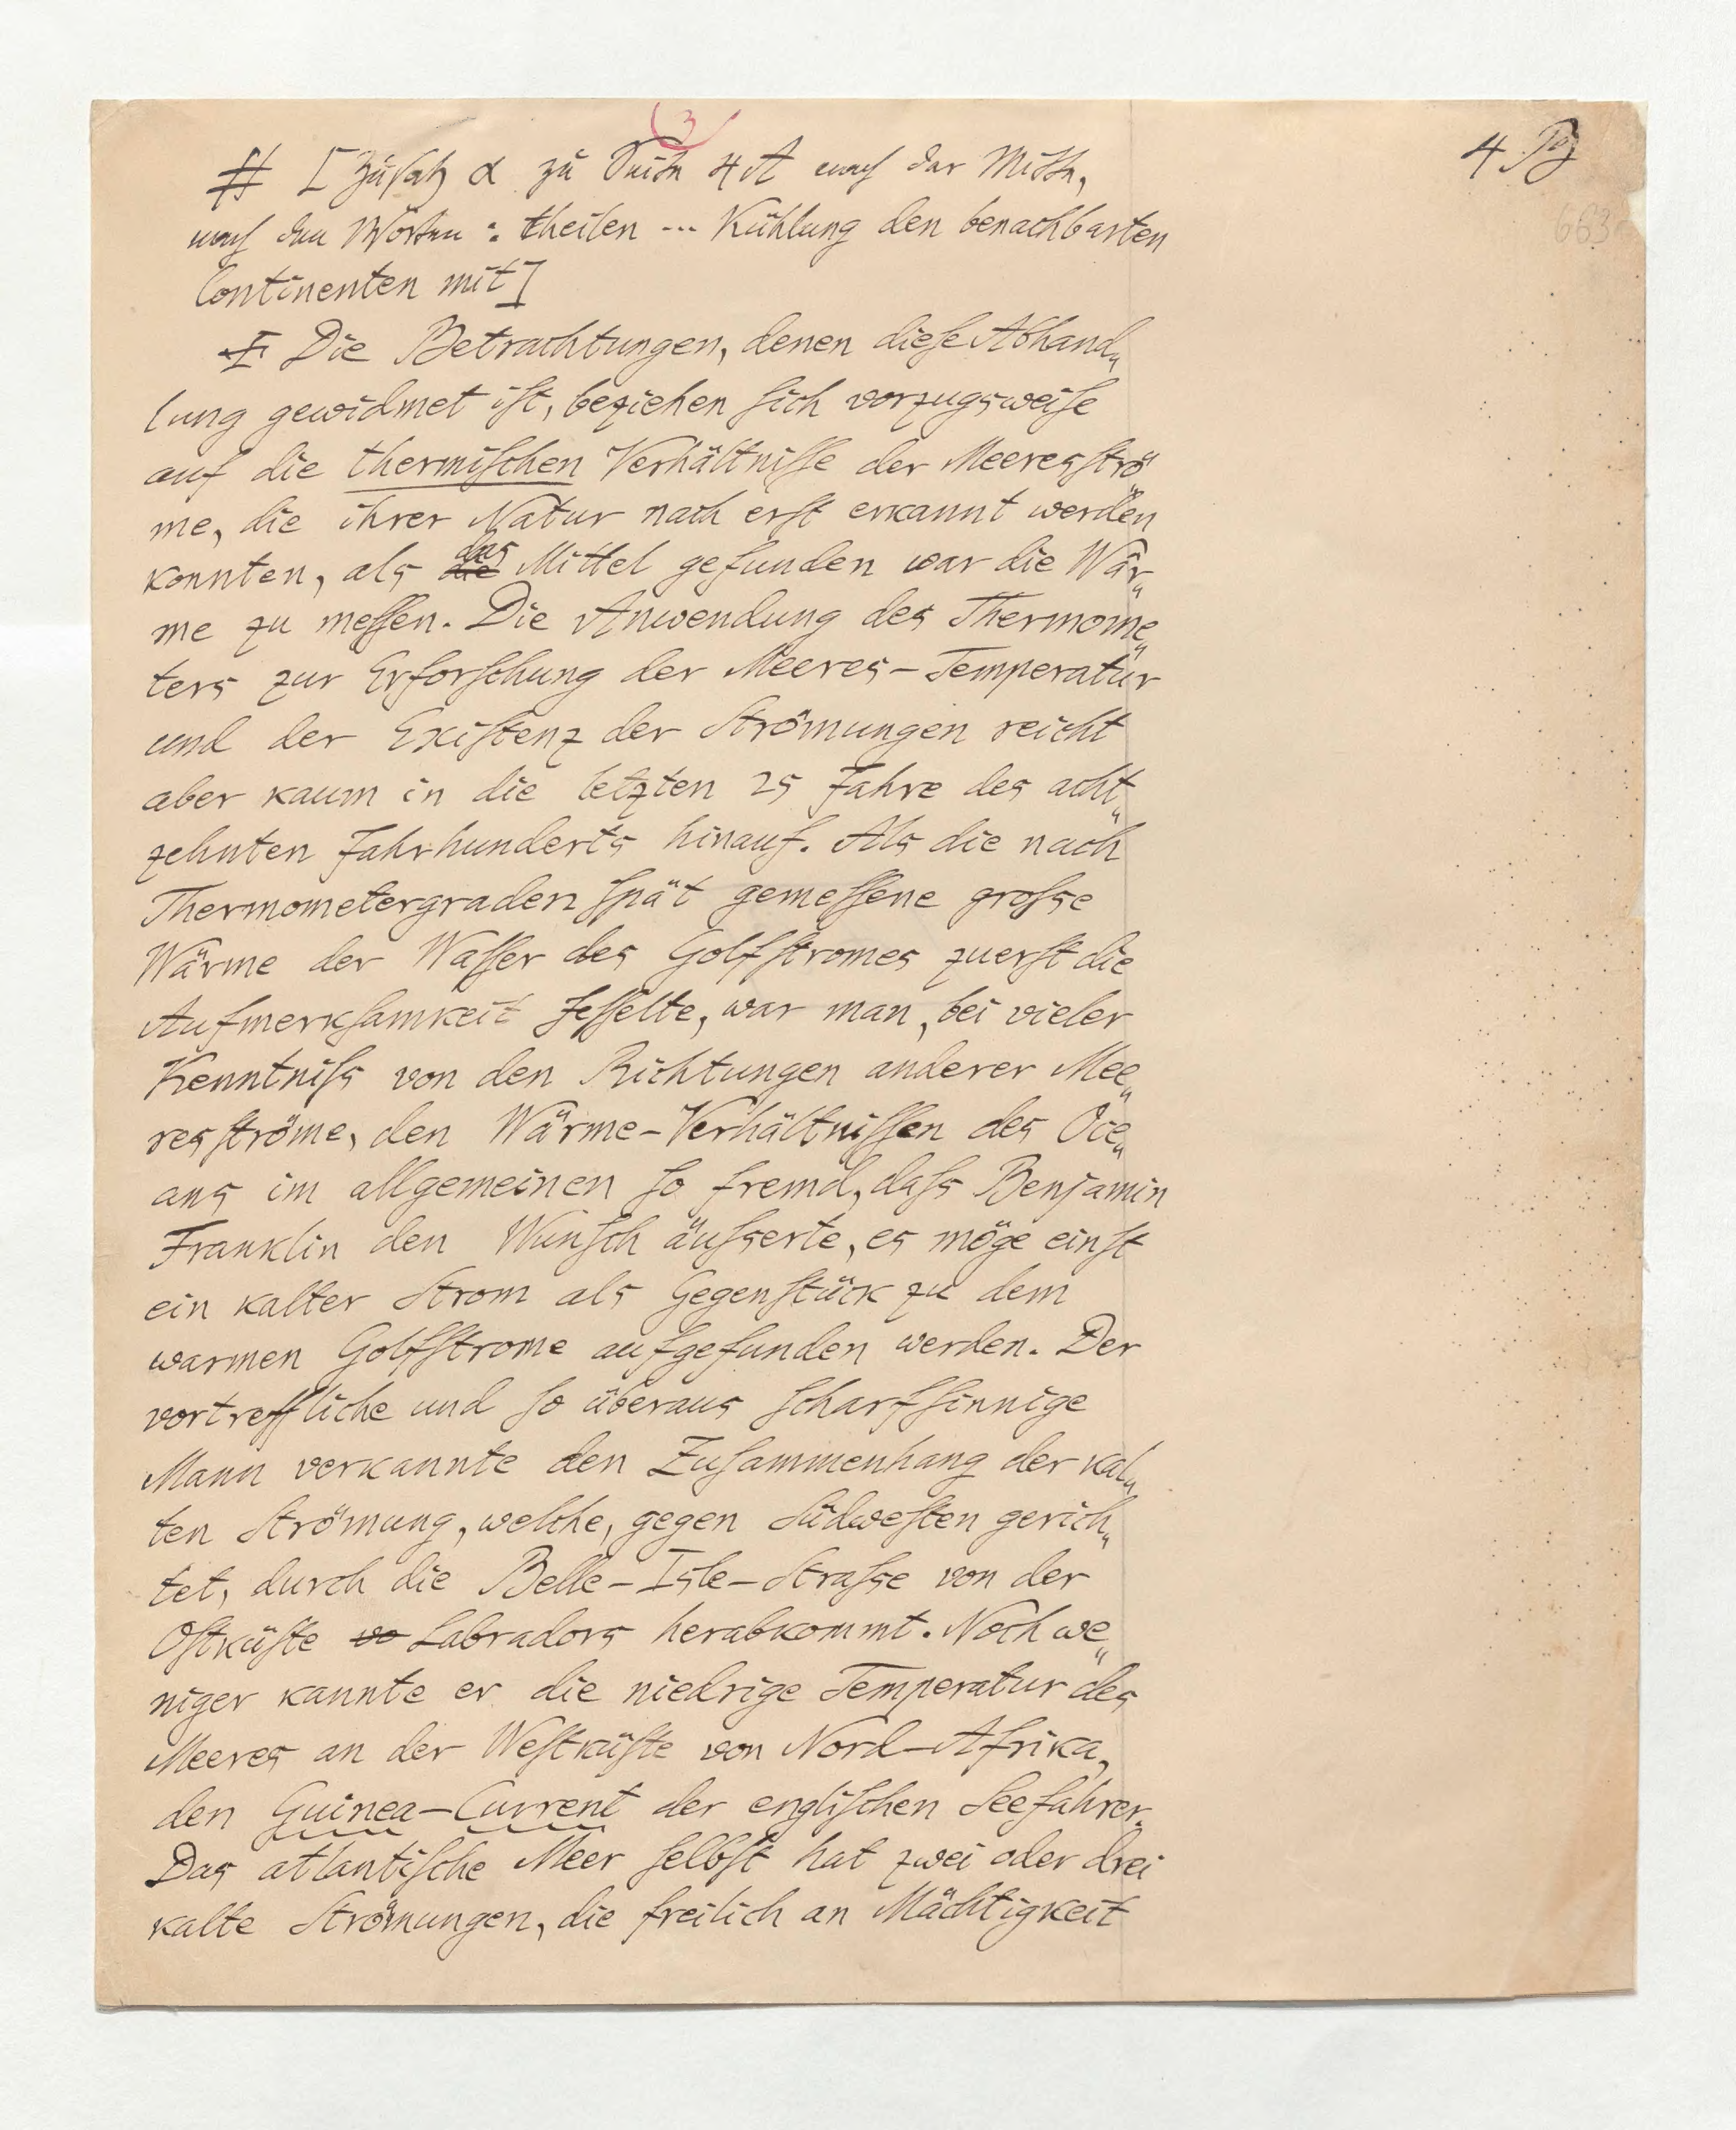 3
4
663
# [Zusatz α zu Seite 4A nach der Mitte,
nach den Worten: theilen ... Kühlung den benachbarten
Continenten mit]
Die Betrachtungen, denen dieſe Abhand„
lung gewidmet iſt, beziehen ſich vorzugsweiſe
auf die thermiſchen Verhältniſſe der Meeresſtrö„
me, die ihrer Natur nach erſt erkannt werden
konnten, als die das Mittel gefunden war die Wär„
me zu meſſen. Die Anwendung des Thermome„
ters zur Erforſchung der Meeres-Temperatur
und der Exiſtenz der Strömungen reicht
aber kaum in die letzten 25 Jahre des acht„
zehnten Jahrhunderts hinauf. Als die nach
Thermometergraden ſpät gemeſſene groſse
Wärme der Waſſer des Golfſtromes zuerſt die
Aufmerkſamkeit feſſelte, war man, bei vieler
Kenntniſs von den Richtungen anderer Mee„
resſtröme, den Wärme-Verhältniſſen des Oce„
ans im allgemeinen ſo fremd, daſs Benjamin
Franklin den Wunſch äuſserte, es möge einſt
ein kalter Strom als Gegenſtück zu dem
warmen Golfſtrome aufgefunden werden. Der
vortreffliche und ſo überaus ſcharfſinnige
Mann verkannte den Zuſammenhang der kal„
ten Strömung, welche, gegen Südweſten gerich„
tet, durch die Belle-Isle-Straſse von der
Oſtküſte vo Labradors herabkommt. Noch we„
niger kannte er die niedrige Temperatur des
Meeres an der Weſtküſte von Nord-Afrika,
den Guinea-Current der engliſchen Seefahrer.
Das atlantiſche Meer ſelbſt hat zwei oder drei
kalte Strömungen, die freilich an Mächtigkeit